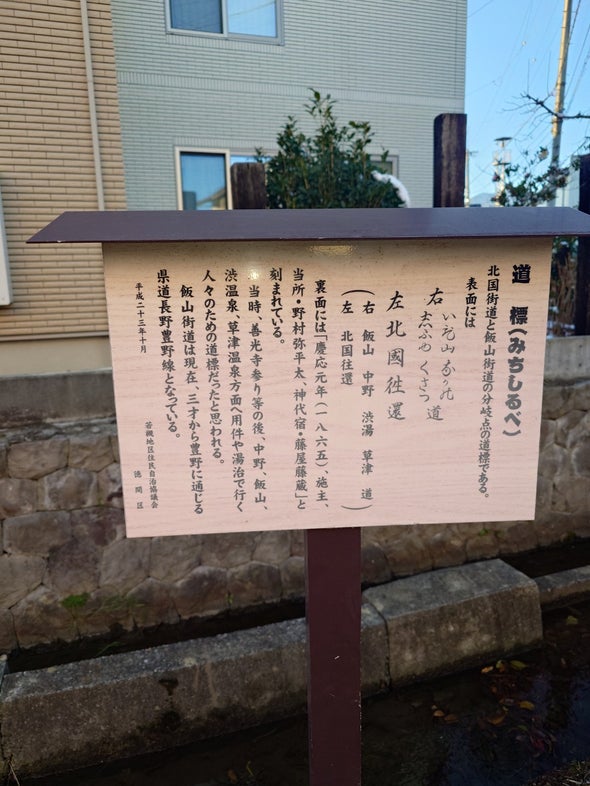 道 標(みちしるべ)
北国街道と飯山街道の分岐点の道標である。
表面には
右 いゝ山 なか乃
志ぶゆ くさつ 道
左 北國往還
(右 飯山 中野 渋湯 草津 道)
(左 北国往還)
裏面には「慶応元年(一八六五)、施主、
当所・野村弥平太、神代宿・藤屋藤蔵」と
刻まれている。
当時、善光寺参り等の後、中野、飯山、
渋温泉、草津温泉方面へ用件や湯治で行く
人々のための道標だったと思われる。
飯山街道は現在、三才から豊野に通じる
県道長野豊野線となっている。
平成二十三年十月
若槻地区住民自治協議会
徳間区